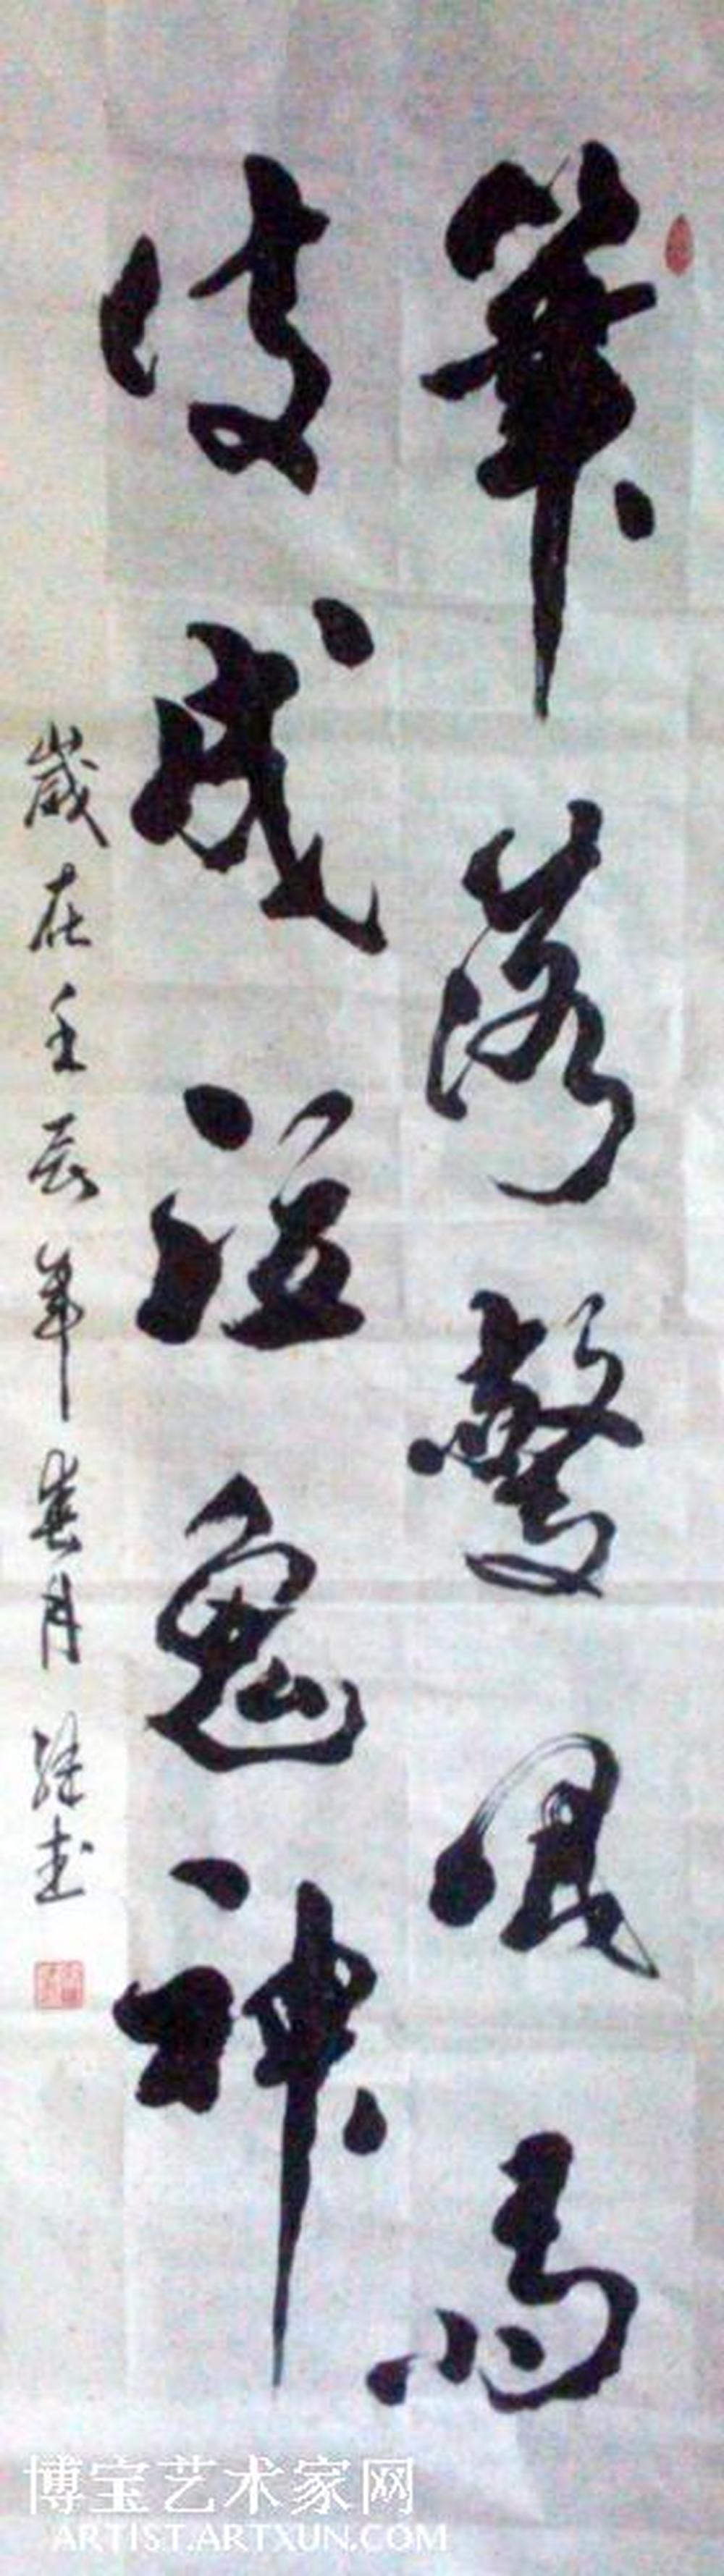 筆落驚風馬
诗成泣鬼神
歲在壬辰年春月
博宝艺术家网
ARTIST.ARTXUN.COM